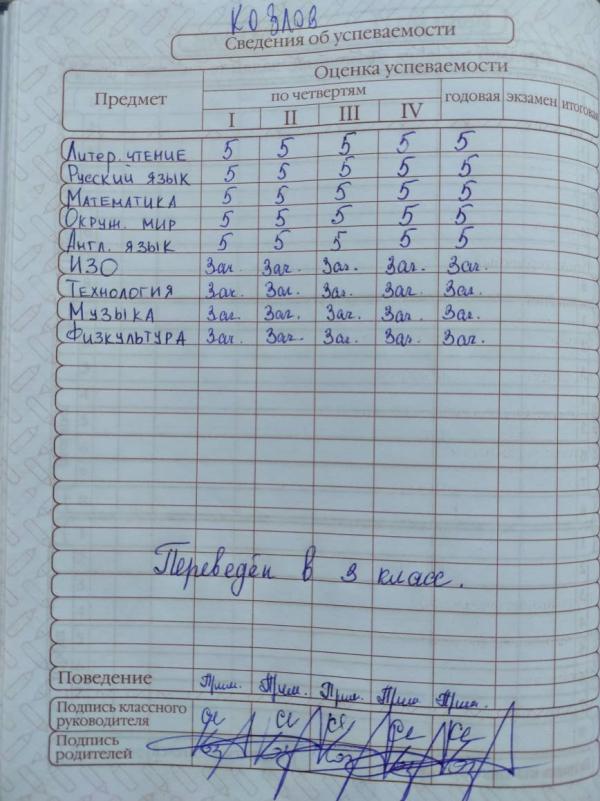 КОЗЛОВ
Сведения об успеваемости
Предмет
Оценка успеваемости
по четвертям
годовая экзамен итоговая
I II III IV
Литер. чтение 5 5 5 5 5
Русский язык 5 5 5 5 5
Математика 5 5 5 5 5
Окруж. мир 5 5 5 5 5
Англ. язык 5 5 5 5 5
ИЗО Зач. Зач. Зач. Зач. Зач.
Технология Зач. Зач. Зач. Зач. Зач.
Музыка Зач. Зач. Зач. Зач. Зач.
Физкультура Зач. Зач. Зач. Зач. Зач.
Переведён в 3 класс.
Поведение Прим. Прим. Прим. Прим. Прим.
Подпись классного
руководителя
Подпись
родителей